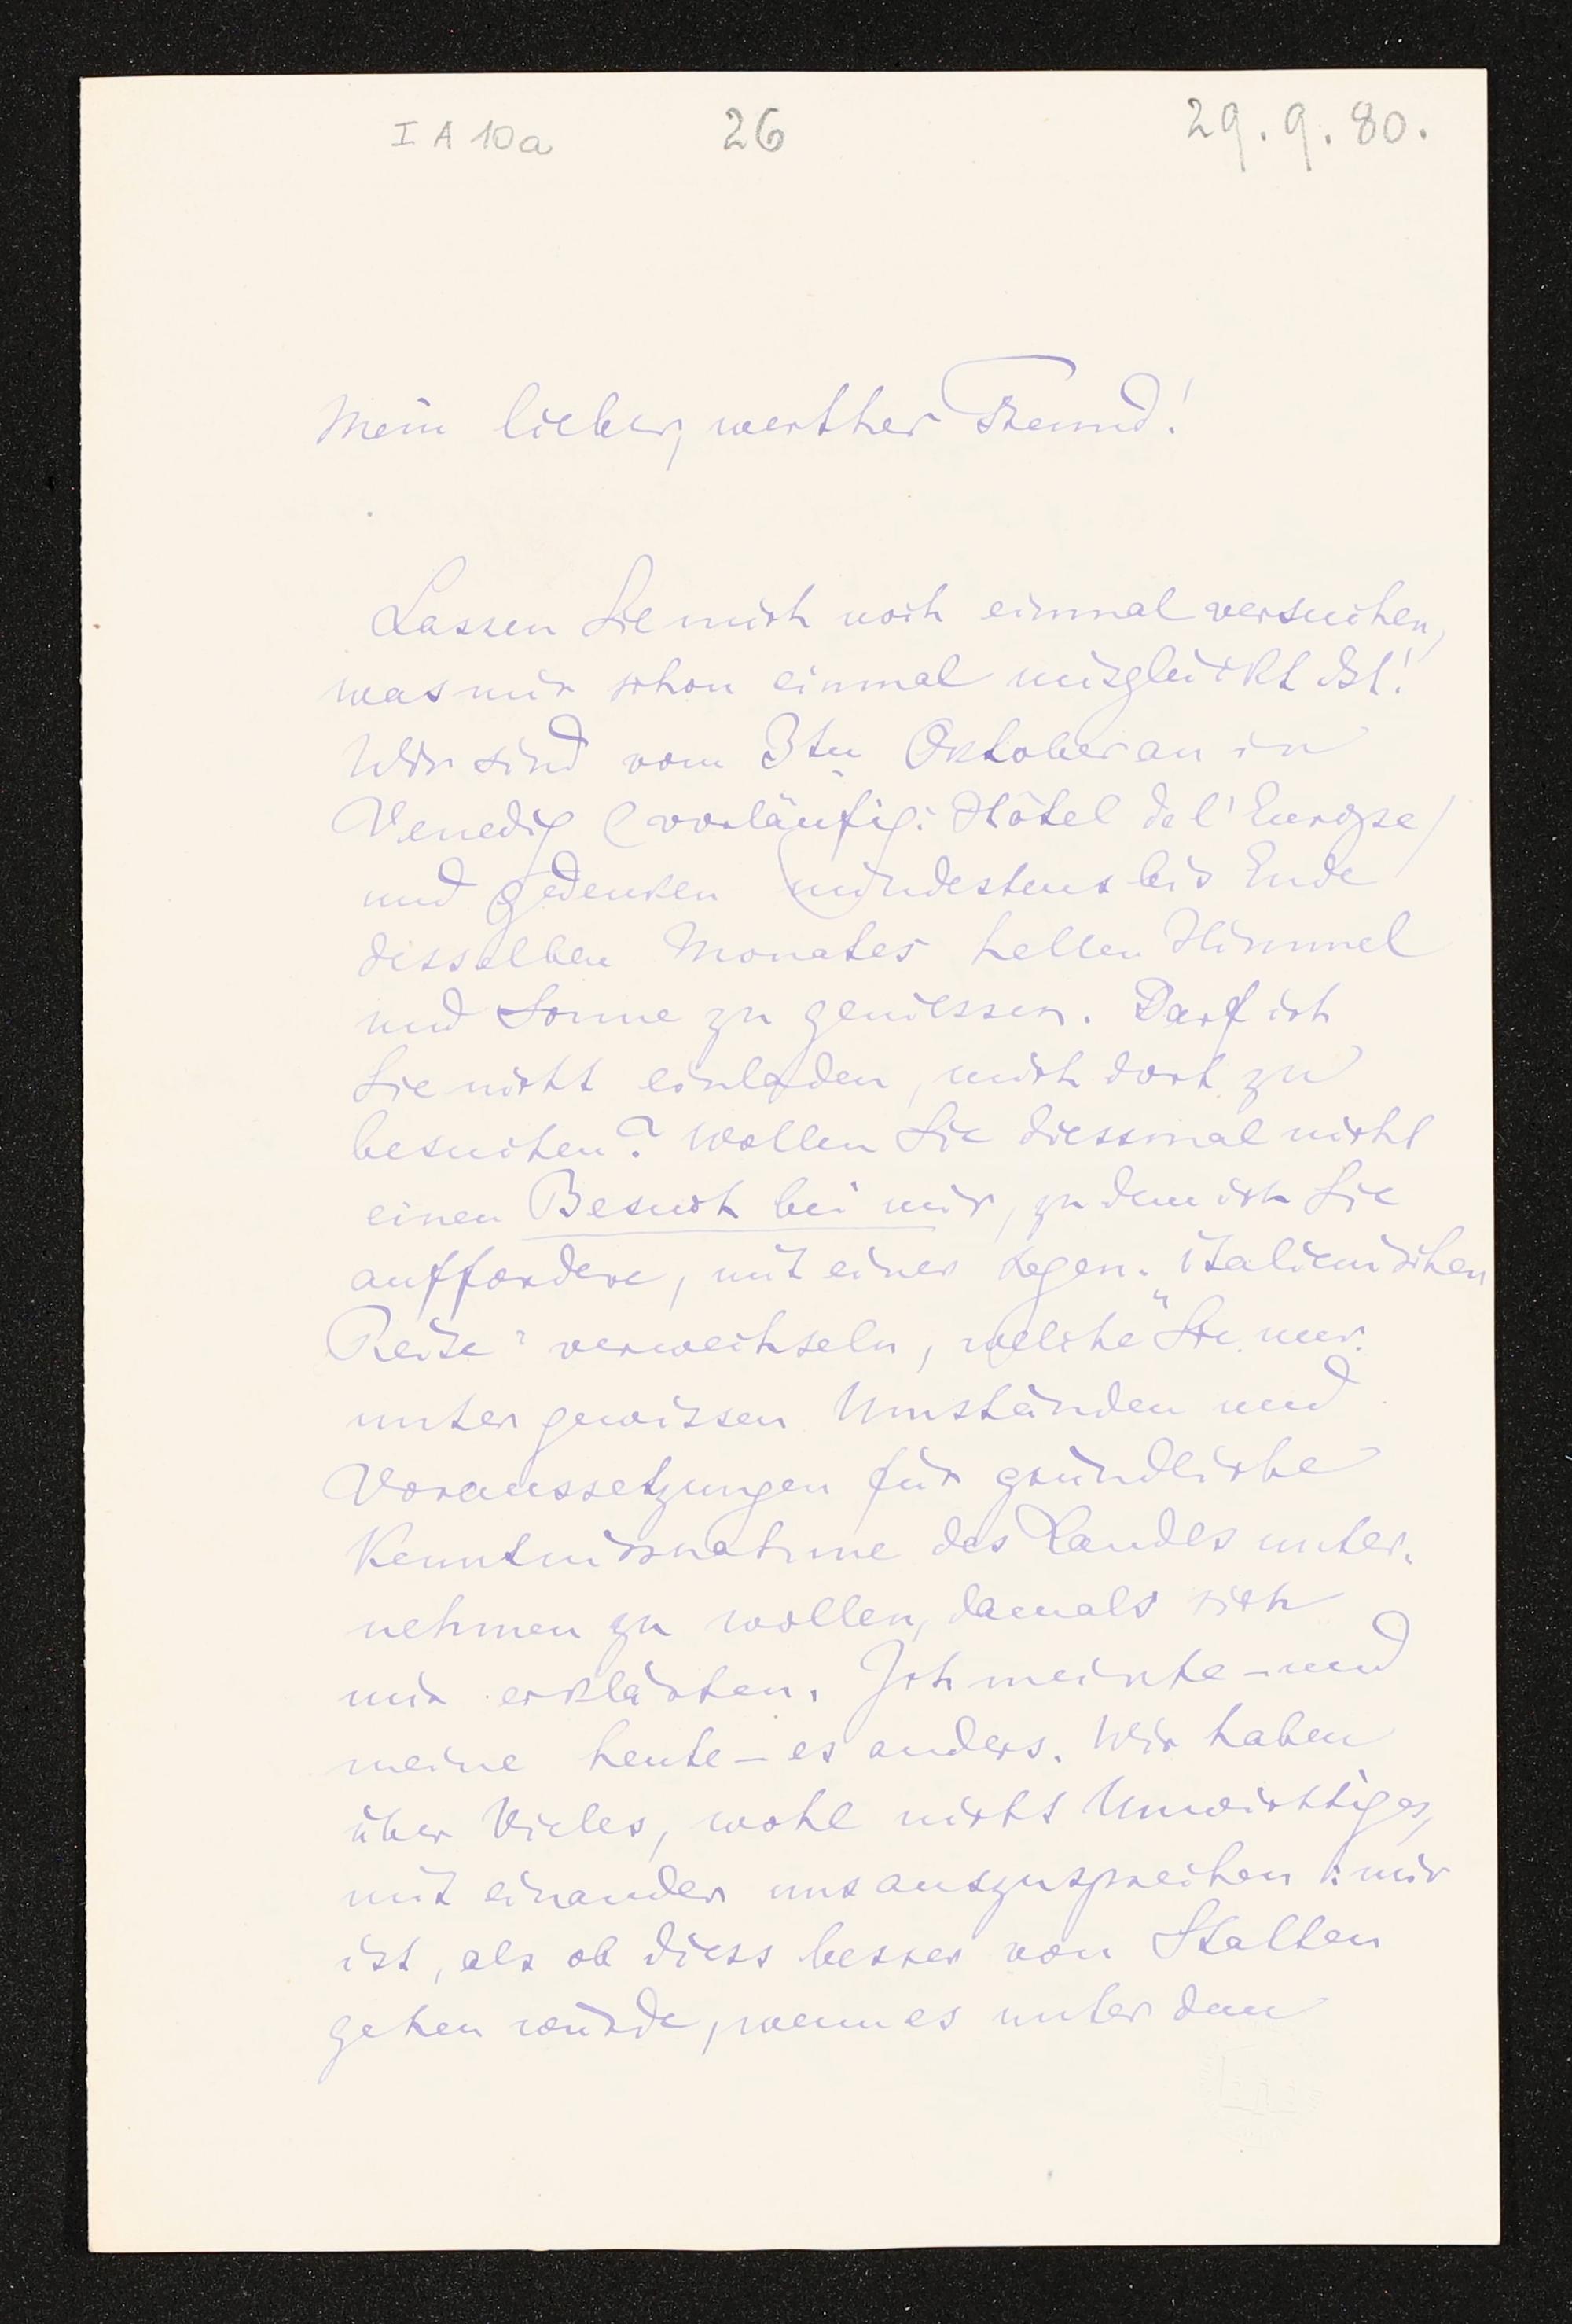 I A 10a 26 29.9.80.
Mein lieber, werther Freund!
Lassen Sie mich noch einmal versuchen,
was mir schon einmal misglückt ist!
Wir sind vom 3ten Oktober an in
Venedig (vorläufig: Hôtel de l'Europe)
und gedenken mindestens bis Ende
desselben Monates hellen Himmel
und Sonne zu geniessen. Darf ich
Sie nicht einladen, mich dort zu
besuchen? Wollen Sie diessmal nicht
einen Besuch bei mir, zu dem ich Sie
auffordere, mit einer sogen. „italienischen
Reise" verwechseln, welche Sie nur
unter gewissen Umständen und
Voraussetzungen für gründliche
Kenntnissnahme des Landes unter-
nehmen zu wollen, damals sich
mir erklärten. Ich meinte – und
meine heute – es anders. Wir haben
über Vieles, wohl nicht Unwichtiges,
mit einander uns auszusprechen: mir
ist, als ob diess besser von Statten
gehen würde, wenn es unter dem